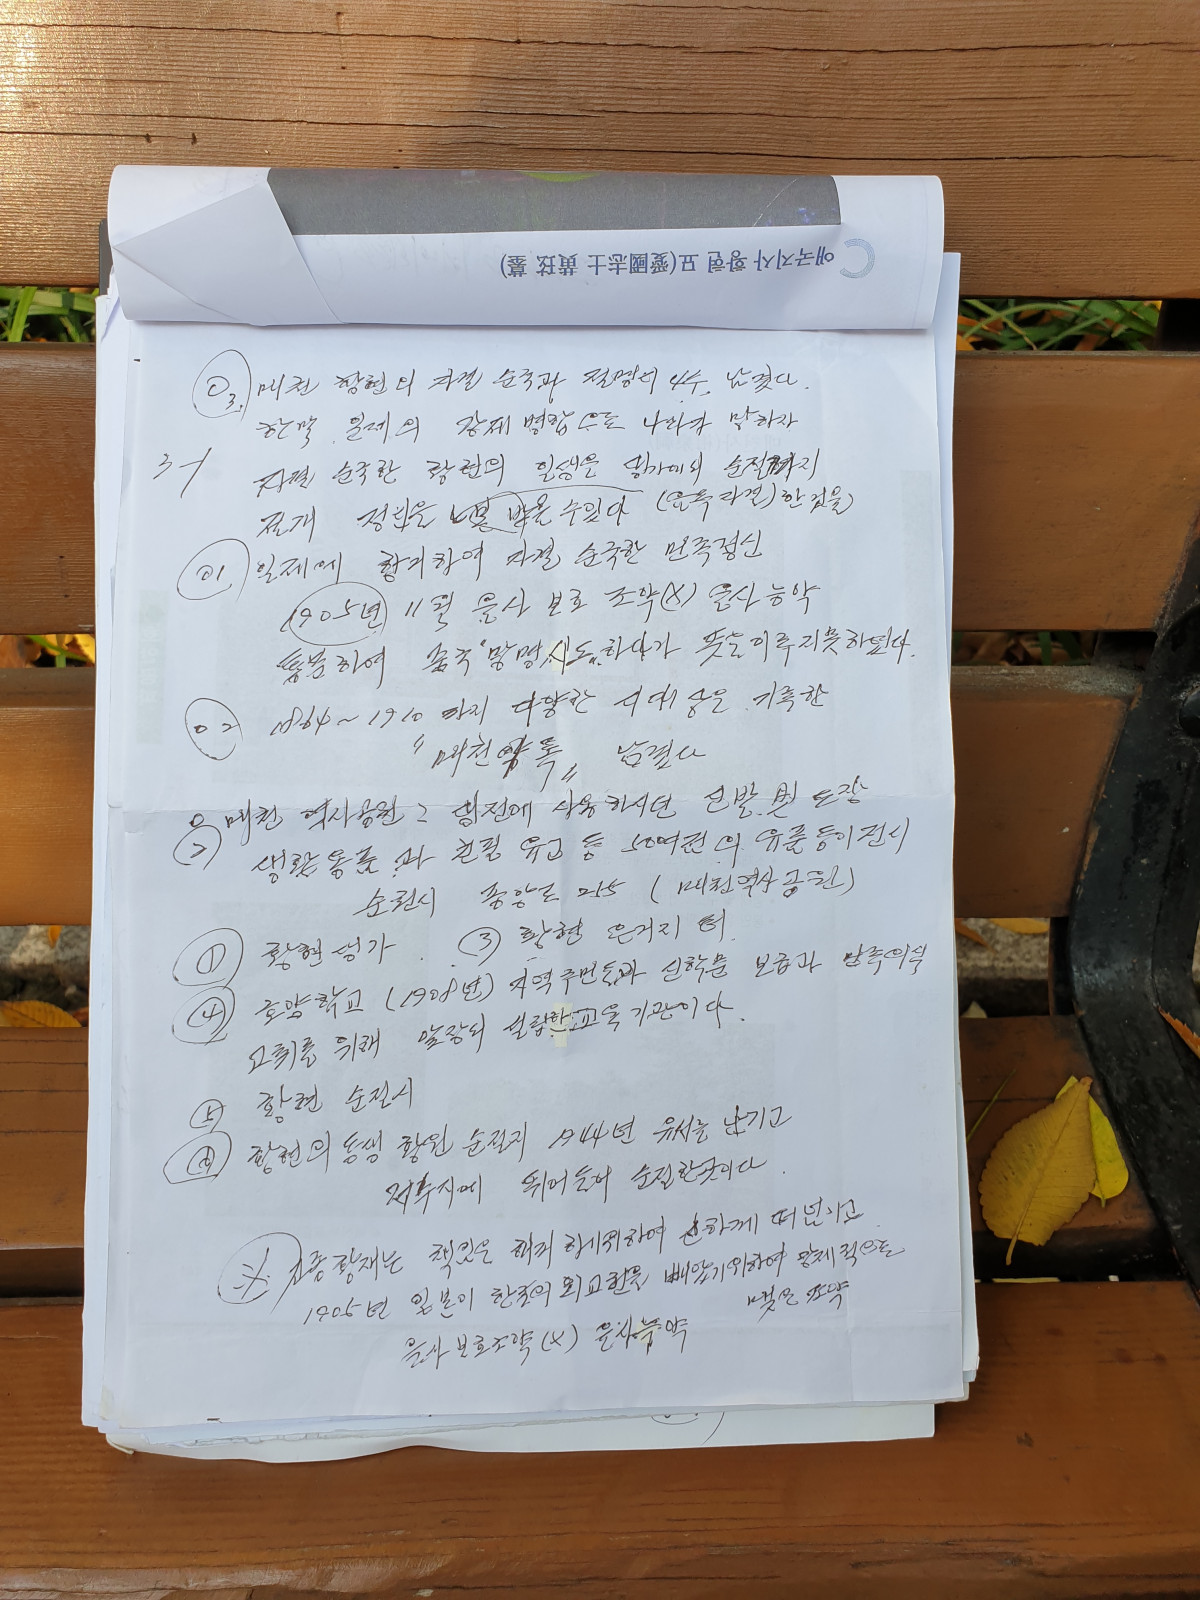 애국지사 황현 묘(愛國志士 黃玹 墓)
03. 매천 황현의 자결 순국과 절명시 4수 남겼다.
한말 일제의 강제병합으로 나라가 망하자
3-1
자결 순국한 황현의 일생을 생가에서 순절까지
전개 정신을 볼 수 있다 (음독자결)한 것을
01. 일제에 항거하여 자결 순국한 민족정신
1905년 11월 을사 보호 조약(X) 을사늑약
통분하여 중국 망명 시도 하다가 뜻을 이루지 못하였다.
02 1864~1910 까지 다양한 시대상을 기록한
"매천야록" 남겼다
매천 역사공원 : 생전에 사용하시던 신발 및 도장
② 생활용품과 친필 유고 등 50여권의 유품 등이 전시
순천시 중앙로 215 (매천역사공원)
① 황현생가 ③ 황현 은거지 터
④ 호양학교 (1908년) 지역주민들과 신학문 보급과 민족의식
고취를 위해 앞장서 설립한 교육기관이다.
⑤ 황현 순절시
⑥ 황현의 동생 황원 순절지 1944년 유서를 남기고
저수지에 뛰어들어 순절한 곳이다.
1905년 일본이 한국의 외교권을 빼앗기 위하여 강제적으로
맺은 조약
을사보호조약(X) 을사늑약